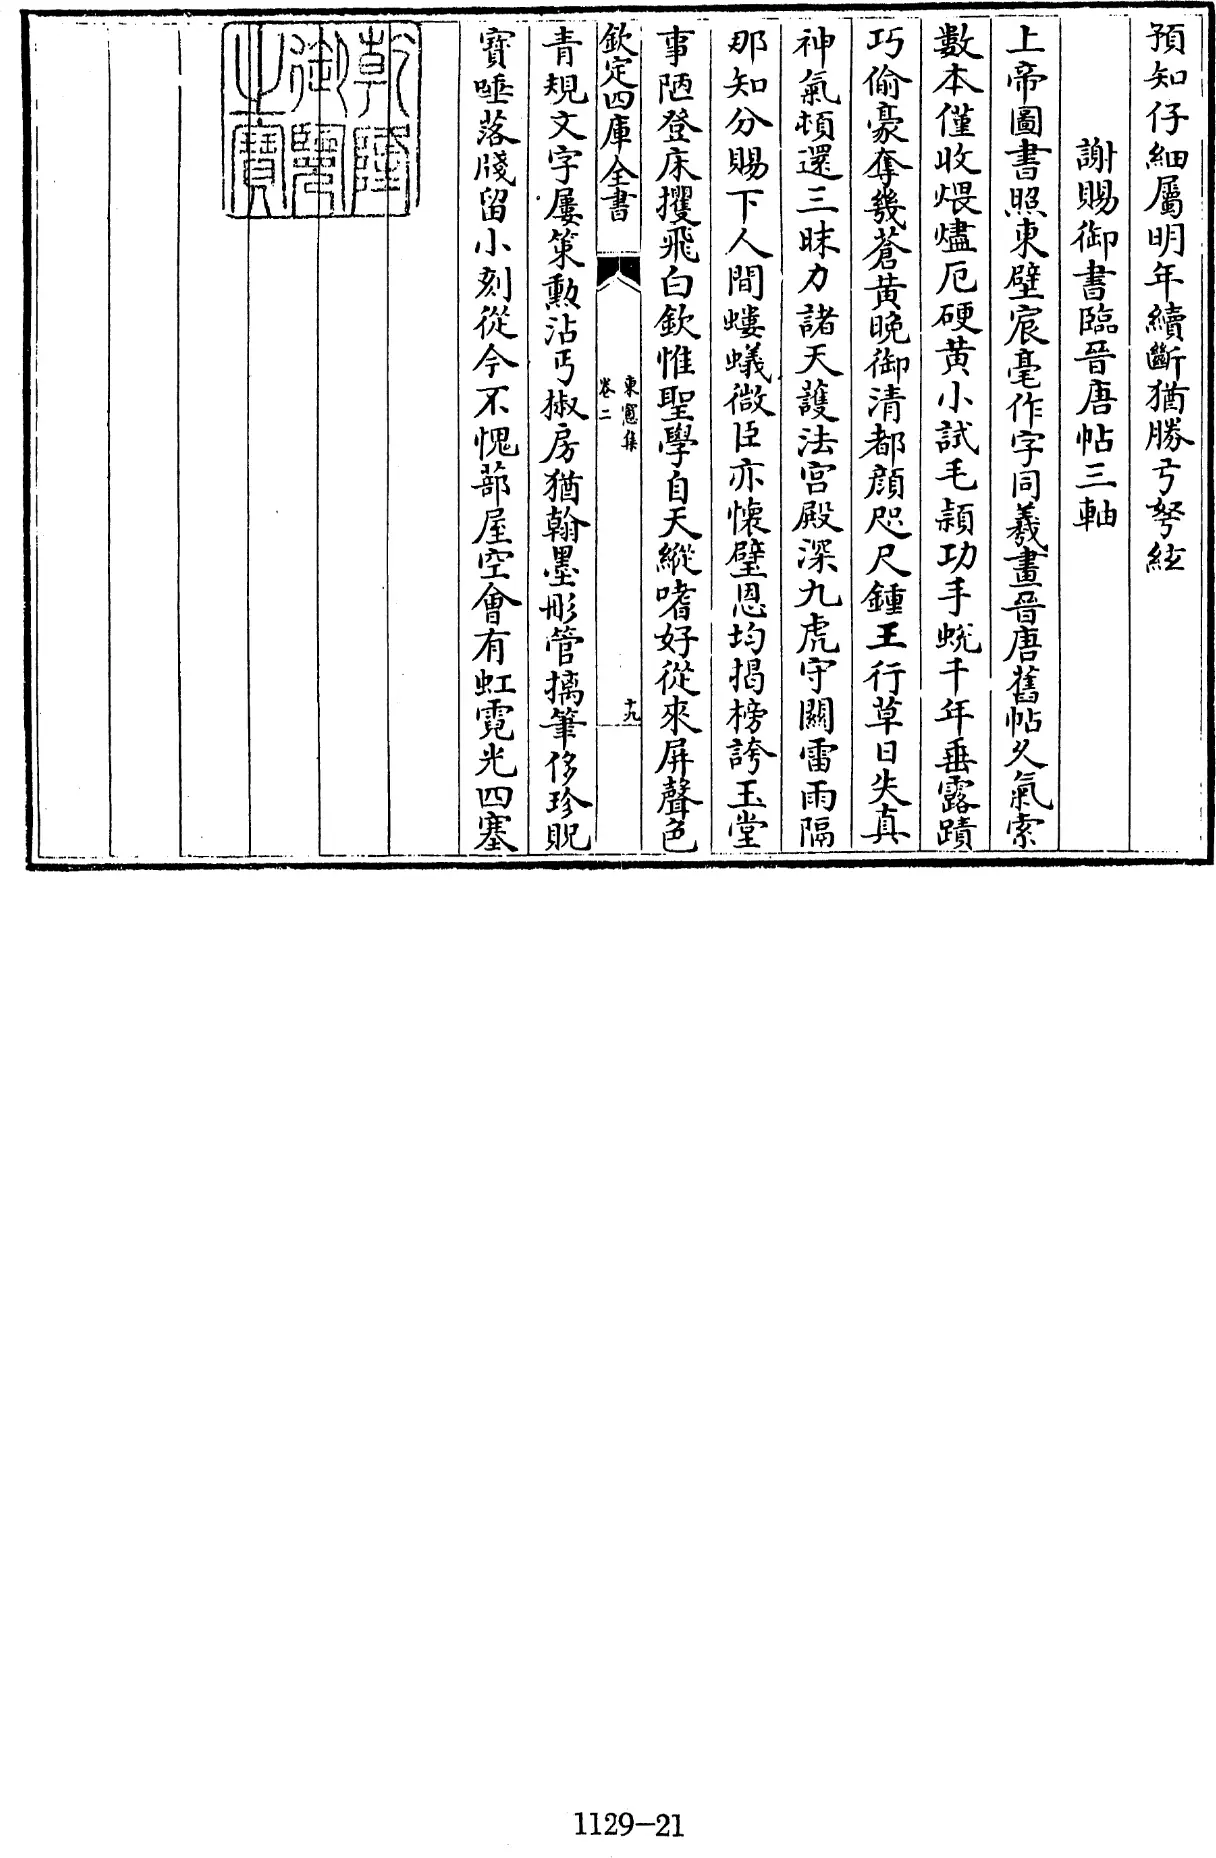 預知仔細屬明年續斷猶勝弓弩絃
謝賜御書臨晉唐帖三軸
上帝圖書照東壁宸毫作字同羲畫晉唐舊帖久氣索
數本僅收煨燼厄硬黄小試毛穎功手蛻千年垂露蹟
巧偷豪奪幾蒼黄晩御清都顔咫尺鍾王行草日失真
神氣頓還三昧力諸天護法宫殿深九虎守闗雷雨隔
那知分賜下人間螻蟻微臣亦懐璧恩均揭榜誇玉堂
事陋登床攫飛白欽惟聖學自天縱嗜好從來屏聲色
欽定四庫全書
東窻集
卷二
十九
青規文字屢策勲沾丐椒房猶翰墨彤管摛筆侈珍貺
寶唾落牋留小刻從今不愧蔀屋空會有虹霓光四塞
乾隆御覽之寶
1129-21